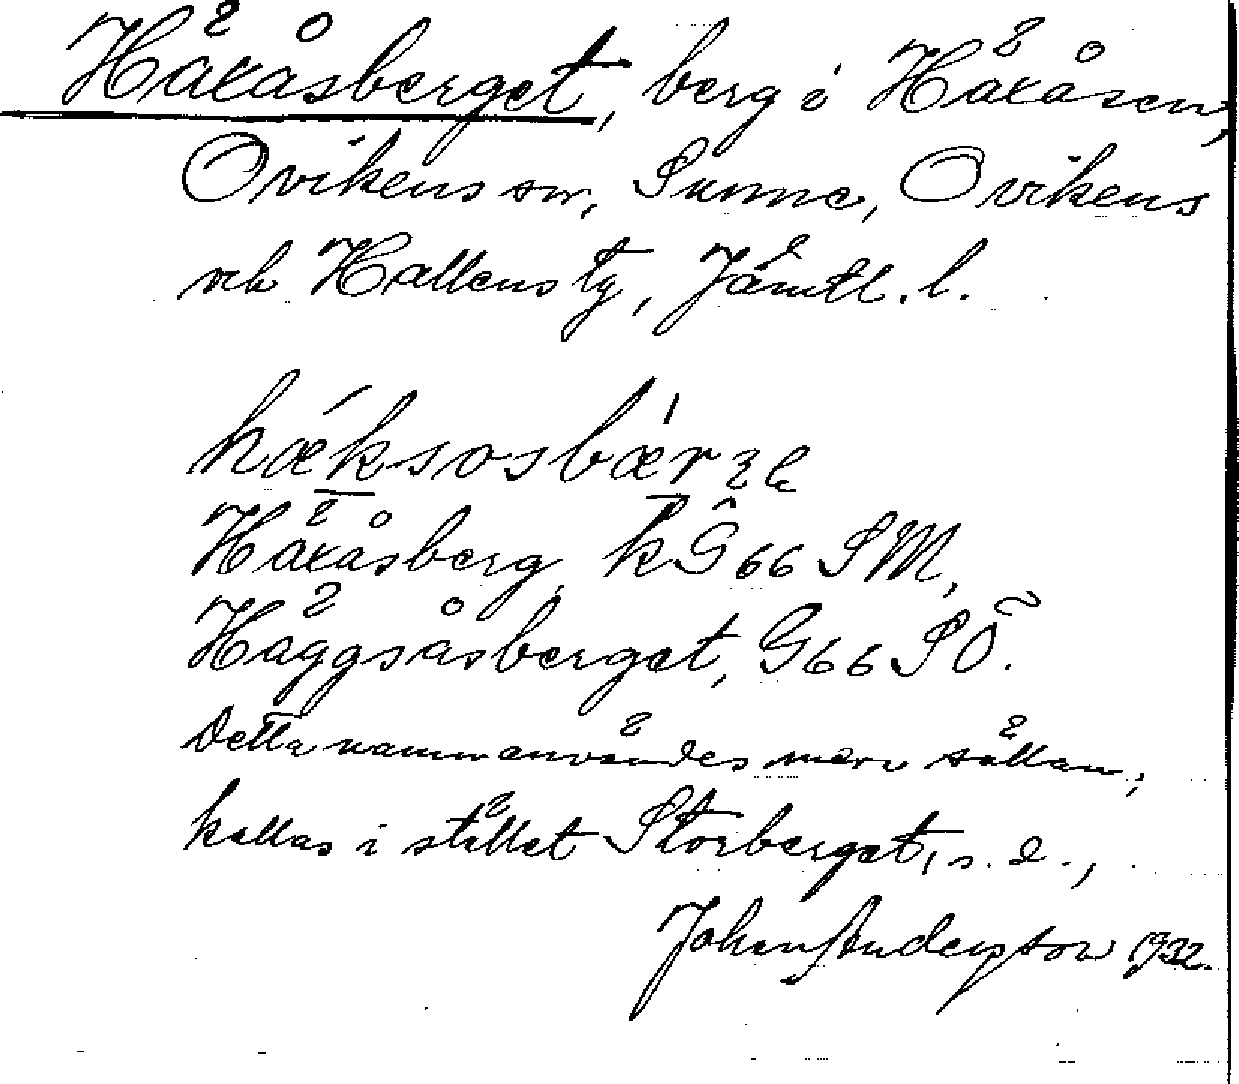 Häxåsberget, berg i Häxåsen,
Ovikens sn, Sunne, Ovikens
och Hallens tg, Jämtl. l.
hæksosbær
Häxåsberg, k G 66 SM,
Häggsåsberget, G 66 SÖ.
Detta namn användes mera sällan,
kallas i stället Storberget, s. d.,
Johan Anderston 1932.